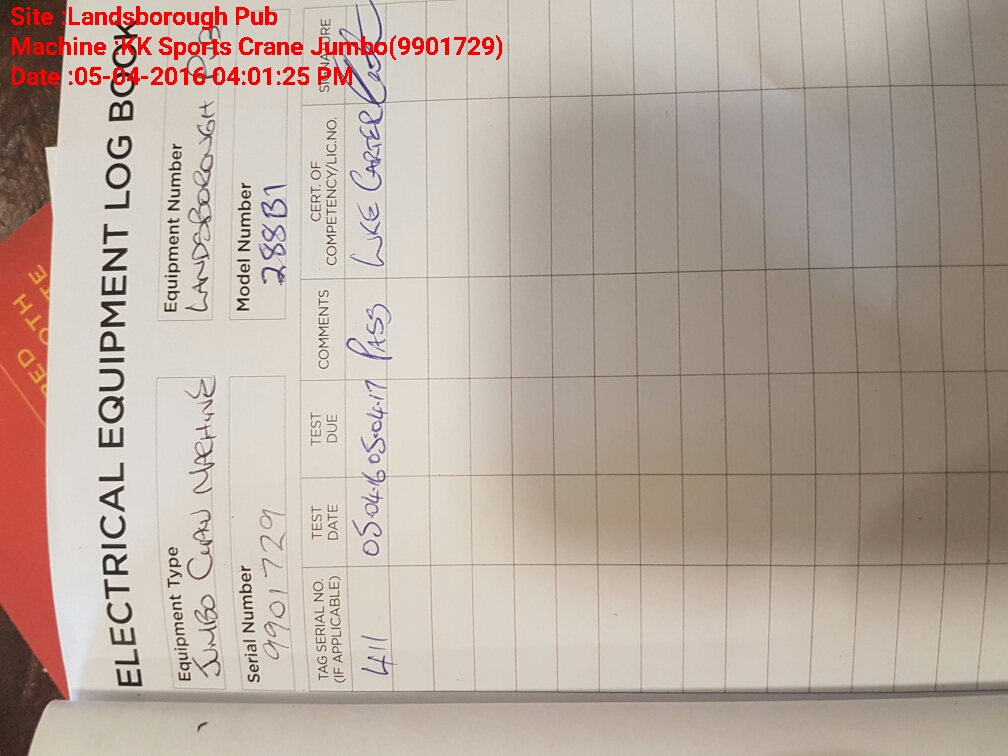 Site :Landsborough Pub
Machine :KK Sports Crane Jumbo(9901729)
Date :05-04-2016 04:01:25 PM
ELECTRICAL EQUIPMENT LOG BOOK
Equipment Type
JUMBO CLAW MACHINE
Equipment Number
LANDSBOROUGH PUB
Serial Number
9901729
Model Number
288B1
TAG SERIAL NO. (IF APPLICABLE)
TEST DATE
TEST DUE
COMMENTS
CERT. OF COMPETENCY/LIC.NO.
SIGNATURE
411 05-04-16 05-04-17 PASS LUKE CARTER
RED
OTH
TE